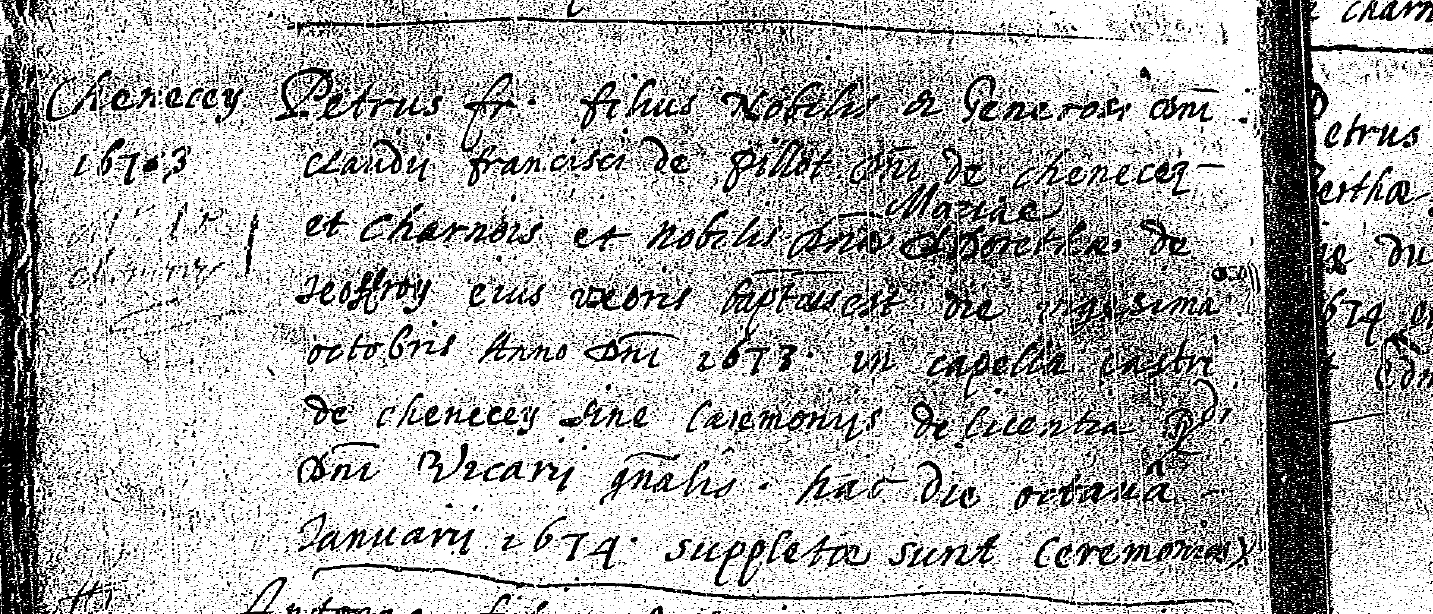 Chenecey
1673
Petrus fr. filius Nobilis & Generosi dni
Claudij francisci de pillot dni de chenecey
et Charnois et nobilis dnae Mariae Dorotheae de
Jeoffroy eius uxoris baptus est die vigesima
octobris Anno Dni 1673. in capella castri
de chenecey sine Caeremonijs de licentia Rdi
Dni Vicarij gnalis. hac die octava
Januarij 1674. suppletae sunt Ceremoniae
etrus
erthae
du
1674